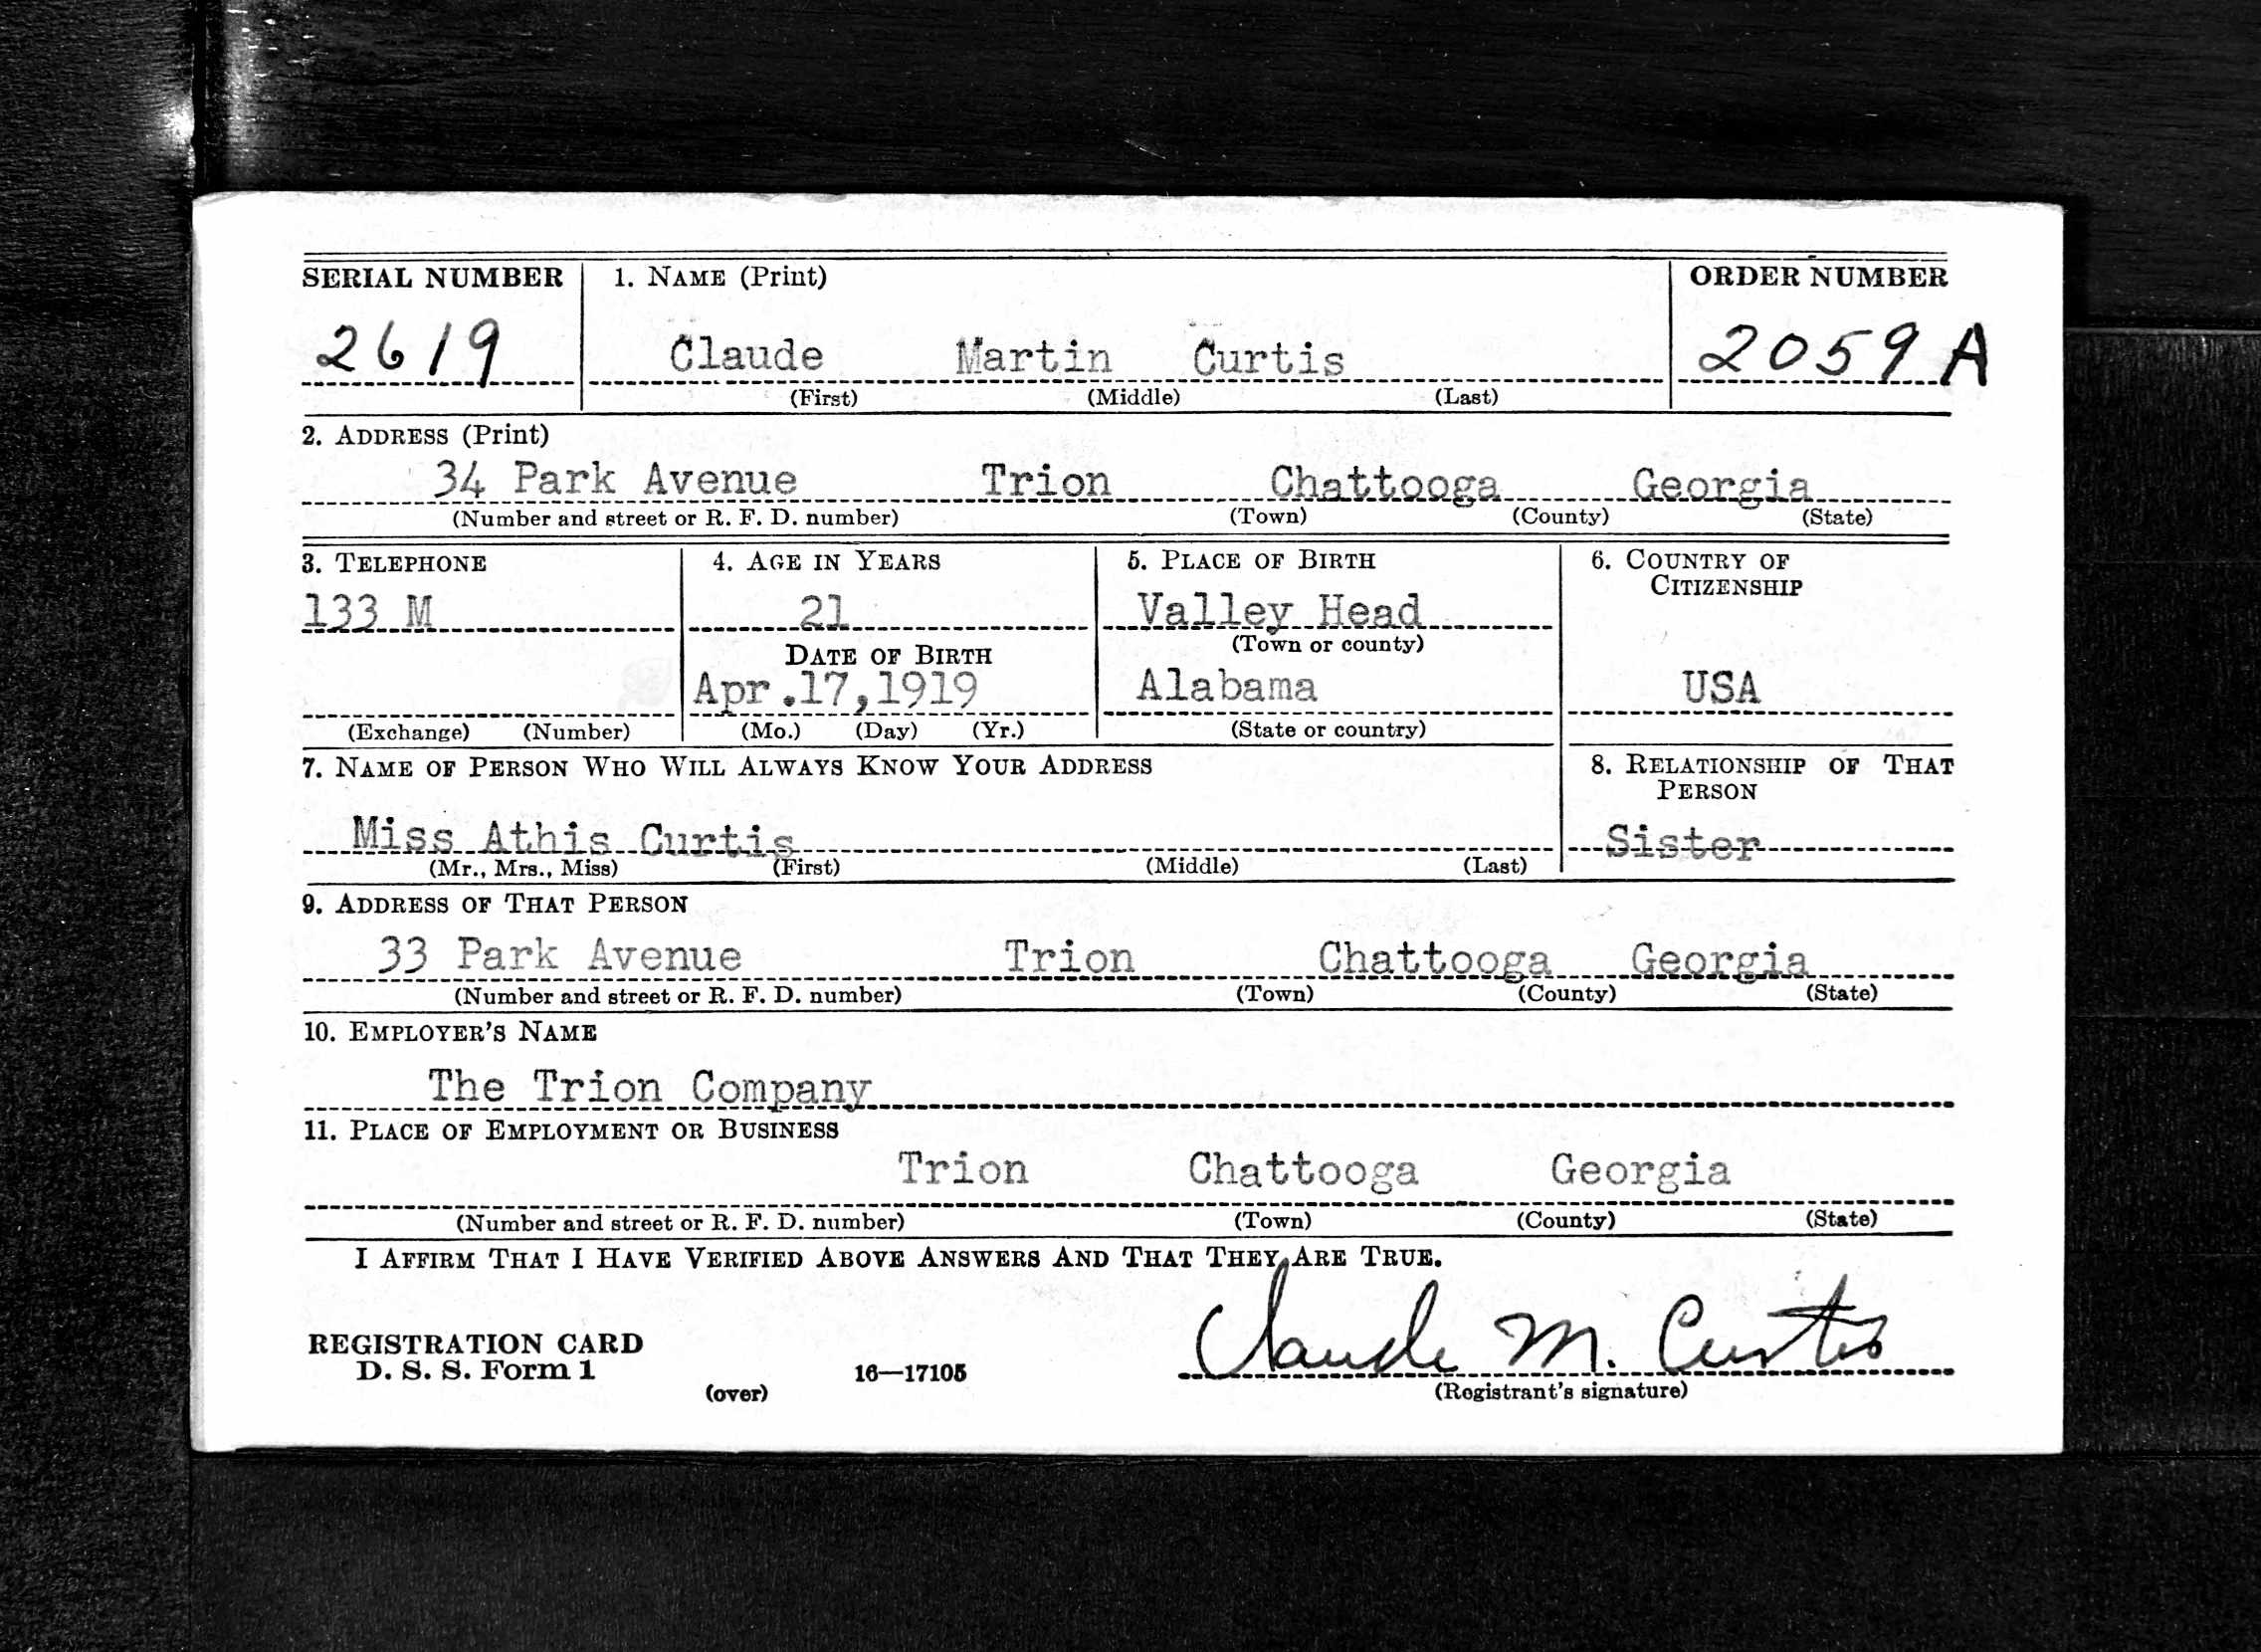 SERIAL NUMBER 1. NAME (Print) ORDER NUMBER
2619 Claude Martin Curtis 2059 A
(First) (Middle) (Last)
2. ADDRESS (Print)
34 Park Avenue Trion Chattooga Georgia
(Number and street or R. F. D. number) (Town) (County) (State)
3. TELEPHONE 4. AGE IN YEARS 5. PLACE OF BIRTH 6. COUNTRY OF CITIZENSHIP
133 M 21 Valley Head
DATE OF BIRTH (Town or county)
Apr.17,1919 Alabama USA
(Exchange) (Number) (Mo.) (Day) (Yr.) (State or country)
7. NAME OF PERSON WHO WILL ALWAYS KNOW YOUR ADDRESS 8. RELATIONSHIP OF THAT PERSON
Miss Athis Curtis Sister
(Mr., Mrs., Miss) (First) (Middle) (Last)
9. ADDRESS OF THAT PERSON
33 Park Avenue Trion Chattooga Georgia
(Number and street or R. F. D. number) (Town) (County) (State)
10. EMPLOYER'S NAME
The Trion Company
11. PLACE OF EMPLOYMENT OR BUSINESS
Trion Chattooga Georgia
(Number and street or R. F. D. number) (Town) (County) (State)
I AFFIRM THAT I HAVE VERIFIED ABOVE ANSWERS AND THAT THEY ARE TRUE.
REGISTRATION CARD
D. S. S. Form 1 16—17105 Claude M. Curtis
(over) (Registrant's signature)